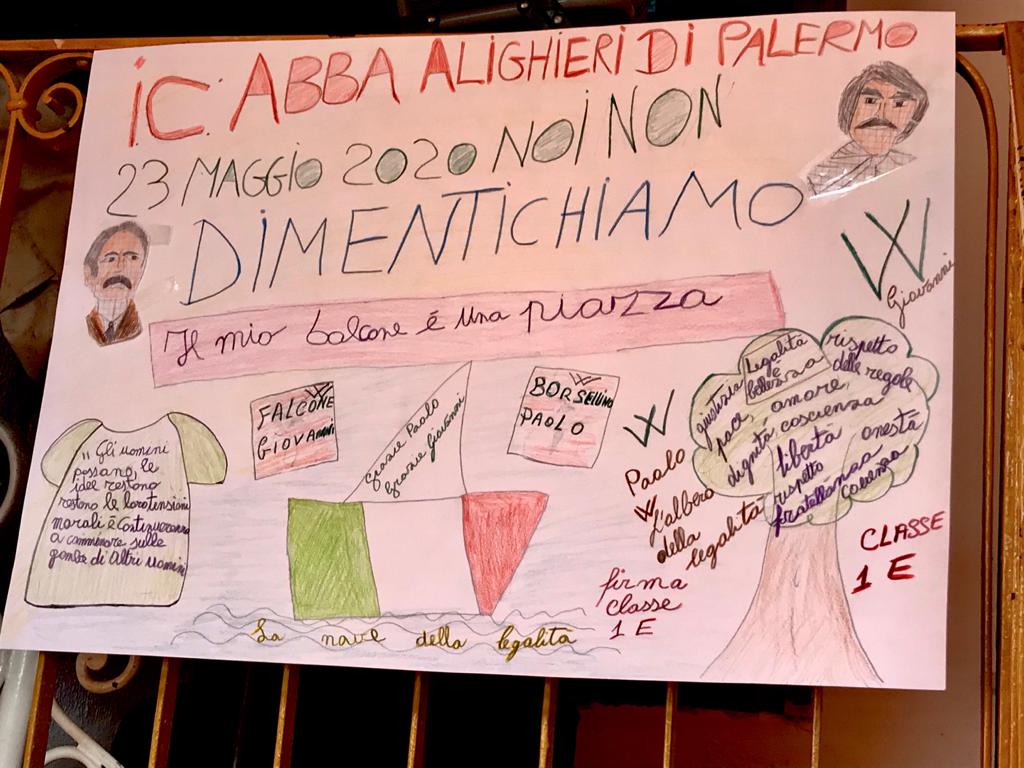 I.C. ABBA ALIGHIERI DI PALERMO
23 MAGGIO 2020 NOI NON
DIMENTICHIAMO
Il mio balcone é una piazza
W
Giovanni
W
FALCONE
GIOVANNI
Grazie Paolo
Grazie Giovanni
W
BORSELLINO
PAOLO
"Gli uomini
passano, le
idee restono
restono le loro tensioni
morali é Continueranno
a camminare sulle
gambe di Altri uomini
La nave della legalitá
W
Paolo
W
L'albero
della
legalitá
firma
classe
1 E
Legalitá
e
bellezza
rispetto
delle regole
giustizia
pace, amore,
dignitá, coscienza
libertá onestá
rispetto
fratellanza
Coerenza
CLASSE
1 E